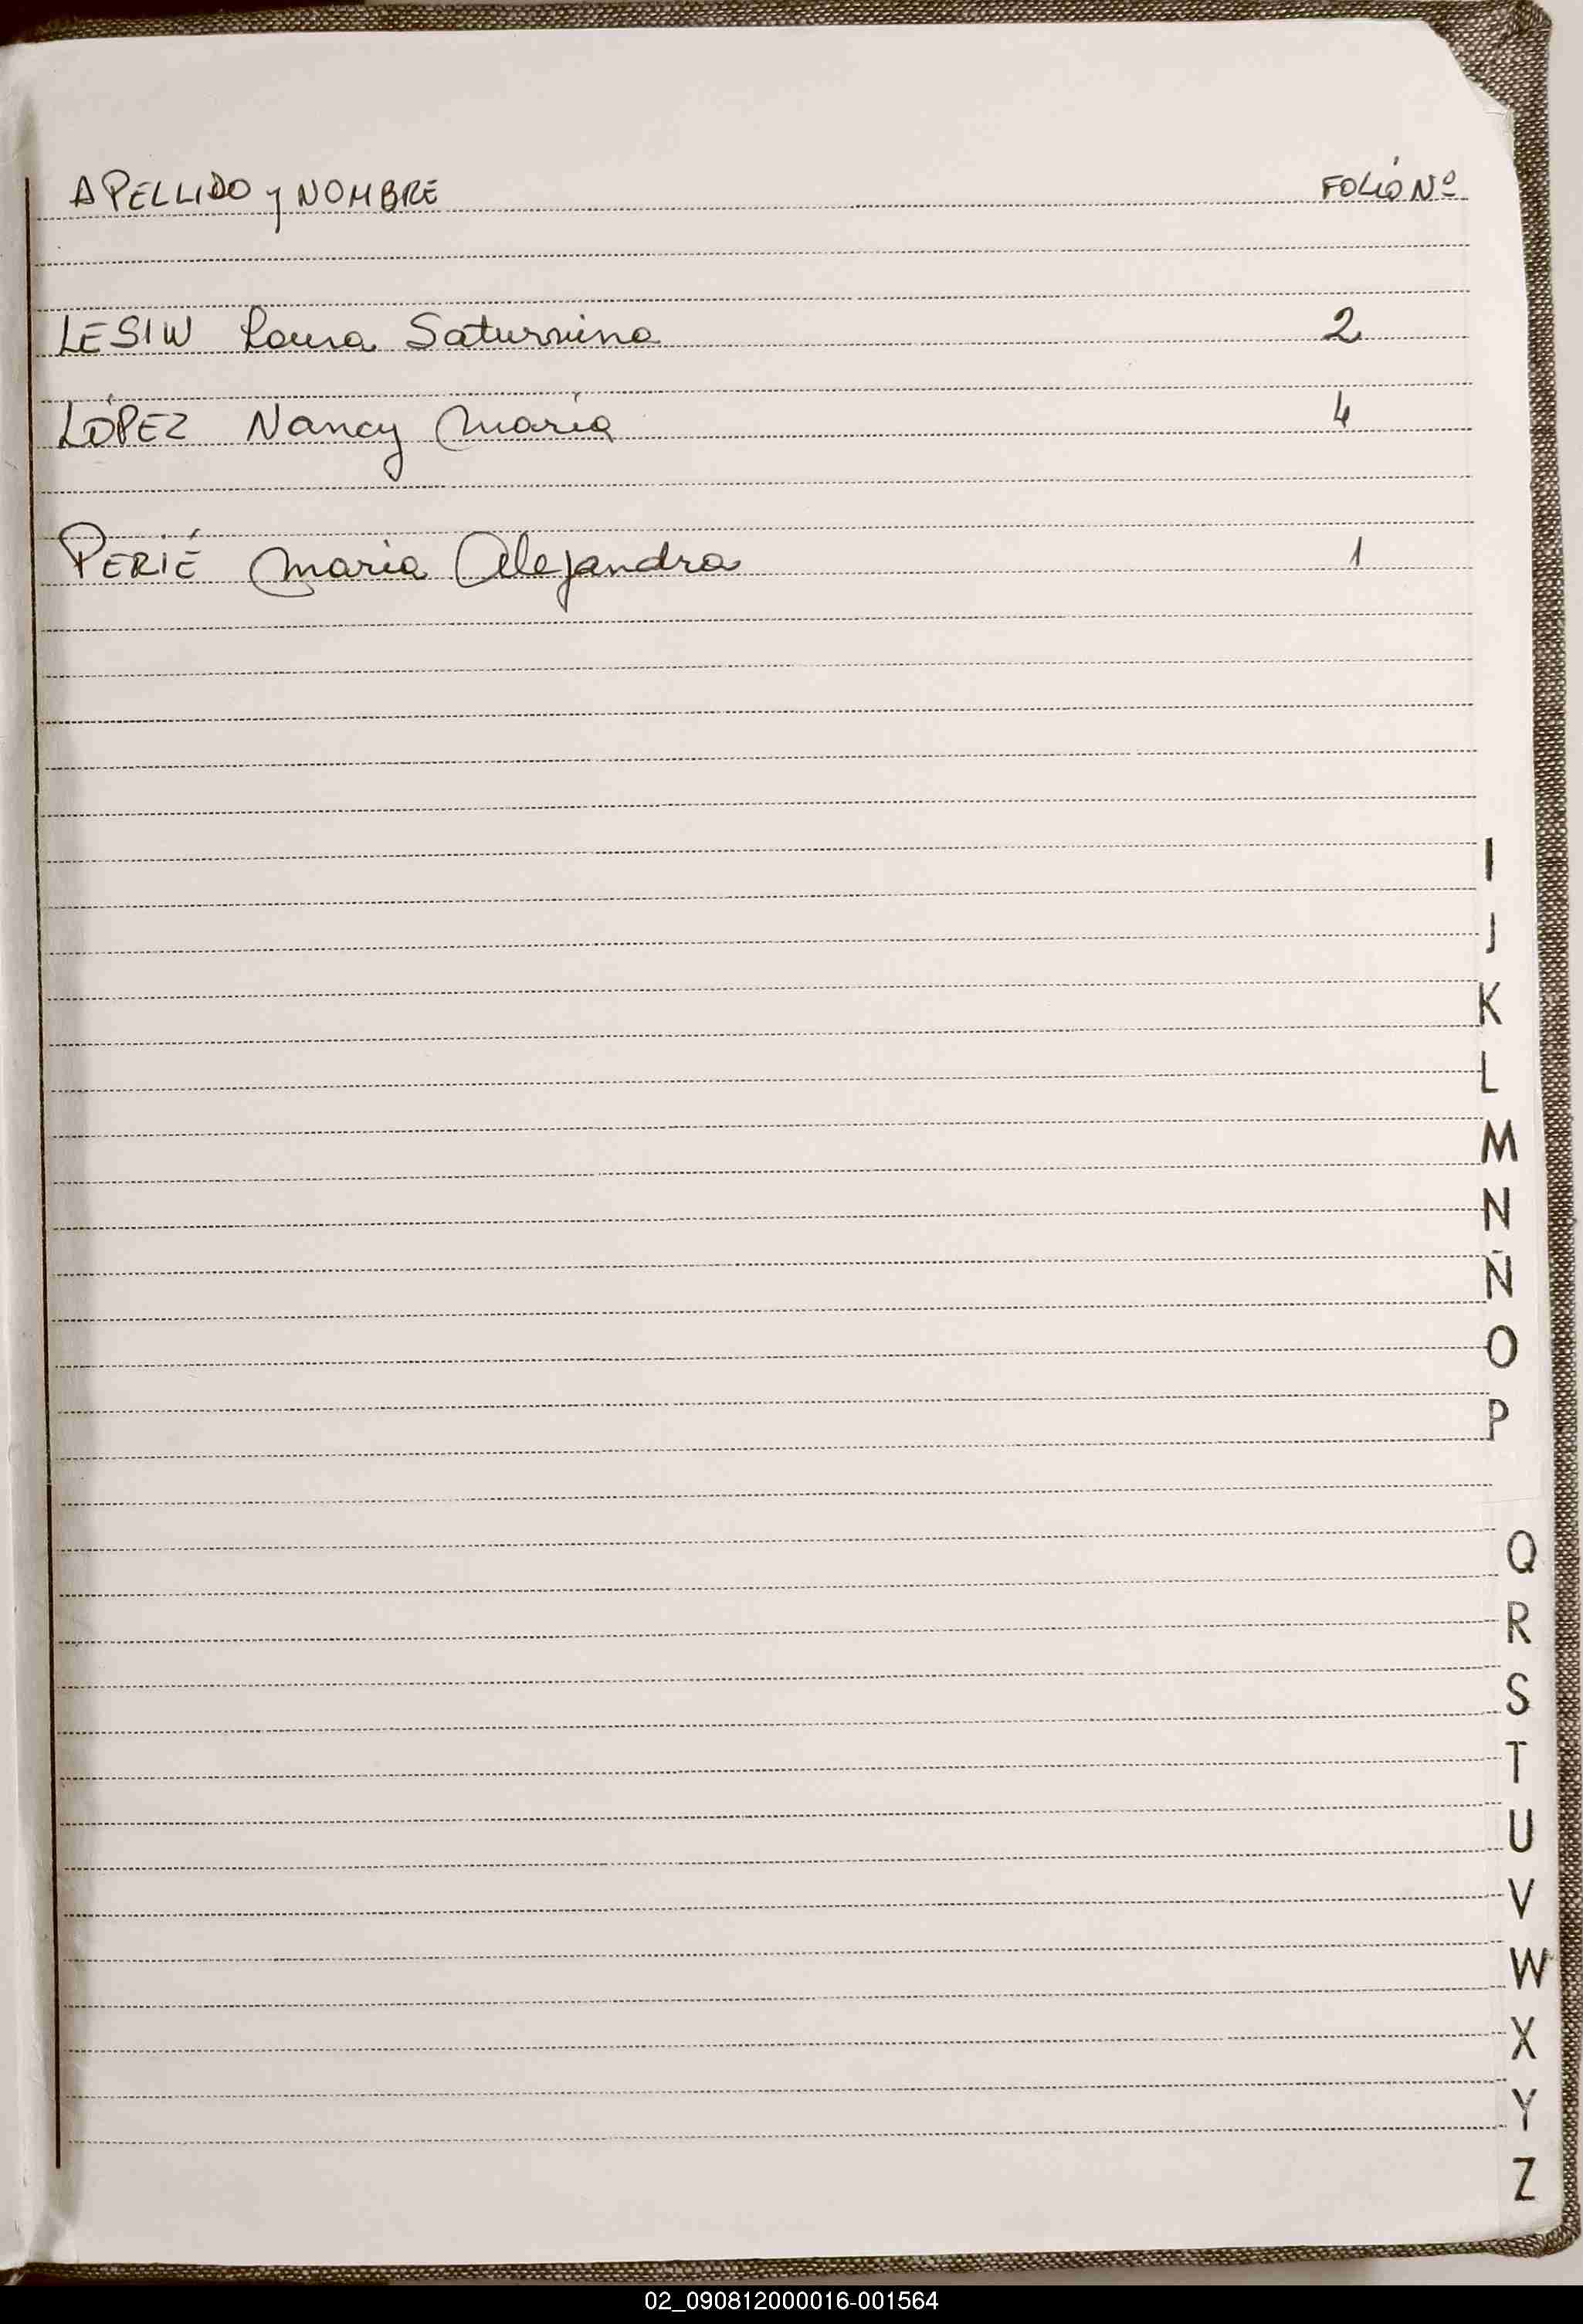 APELLIDO y NOMBRE FOLIO Nº
LESIW Laura Saturnina 2
LÓPEZ Nancy María 4
PERIÉ María Alejandra 1
I
J
K
L
M
N
Ñ
O
P
Q
R
S
T
U
V
W
X
Y
Z
02_090812000016-001564